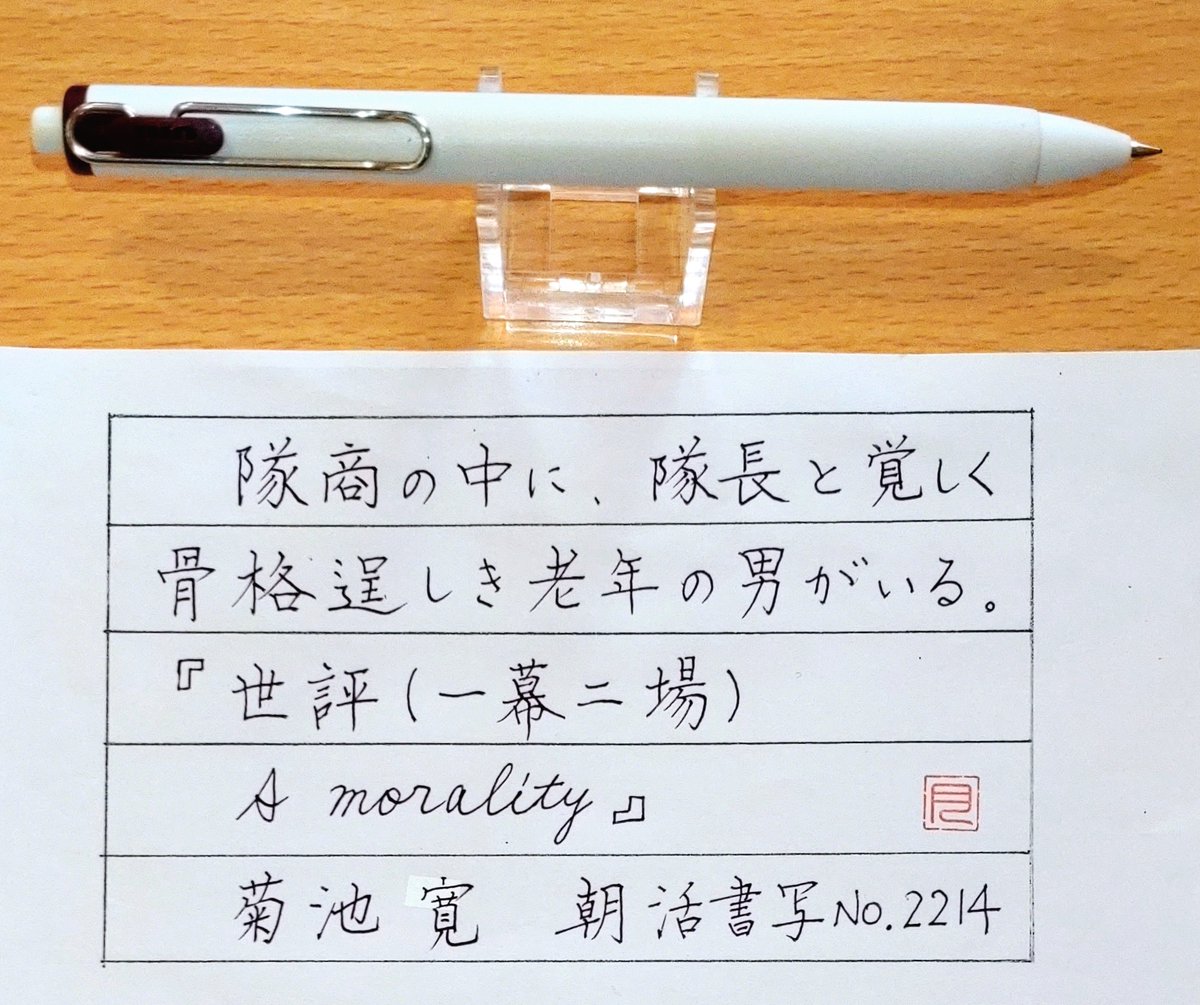 隊商の中に、隊長と覚しく
骨格逞しき老年の男がいる。
『世評(一幕二場)
A morality』
菊池寛 朝活書写No.2214